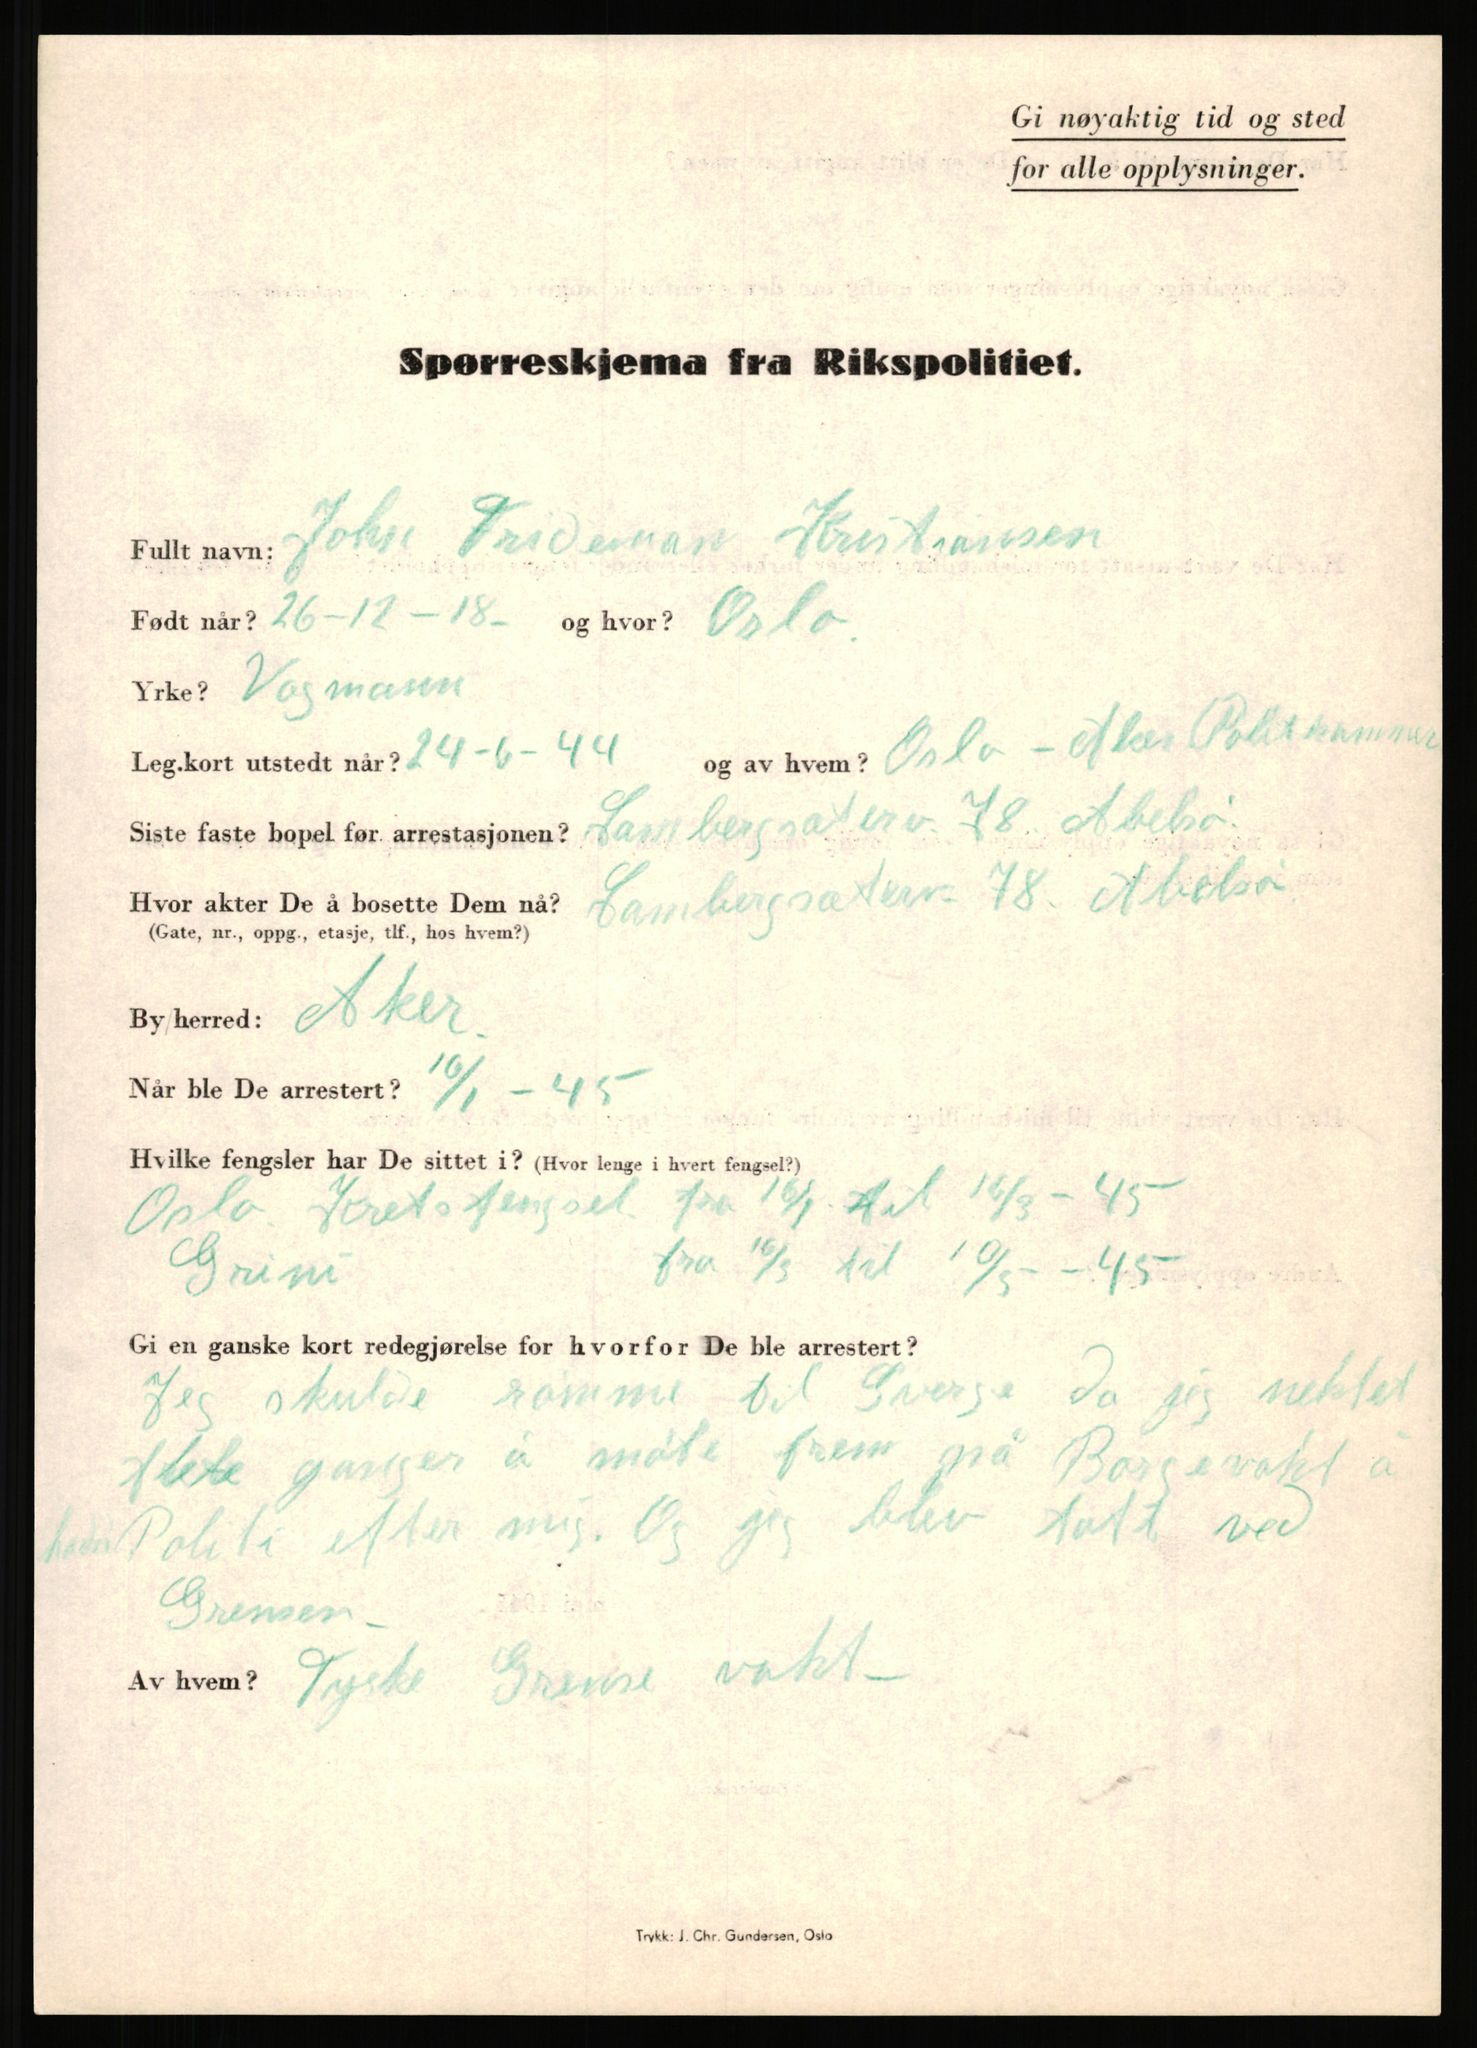 Gi nøyaktig tid og sted
for alle opplysninger.
Spørreskjema fra Rikspolitiet.
Fullt navn: John Trideman Kristiansen
Født når? 26-12-18- og hvor? Oslo.
Yrke? Vogmann
Leg.kort utstedt når? 24-6-44 og av hvem? Oslo - Aker Politikammer
Siste faste bopel før arrestasjonen? Lambergsæterv. 78 Abelsø.
Hvor akter De å bosette Dem nå? Lambergsæterv. 78. Abelsø.
(Gate, nr., oppg., etasje, tlf., hos hvem?)
By/herred: Aker.
Når ble De arrestert? 16/1 - 45
Hvilke fengsler har De sittet i? (Hvor lenge i hvert fengsel?)
Oslo Kretsfengsel fra 16/1 til 16/3 - 45
Grini fra 16/3 til 10/5 - 45
Gi en ganske kort redegjørelse for hvorfor De ble arrestert?
Jeg skulde rømme til Sverge da jeg nektet
flere ganger å møte frem på Borgevakt å
hadde Politi efter mig. Og jeg blev tatt ved
Grensen -
Av hvem? Tyske Grense vakt -
Trykk: J. Chr. Gundersen, Oslo